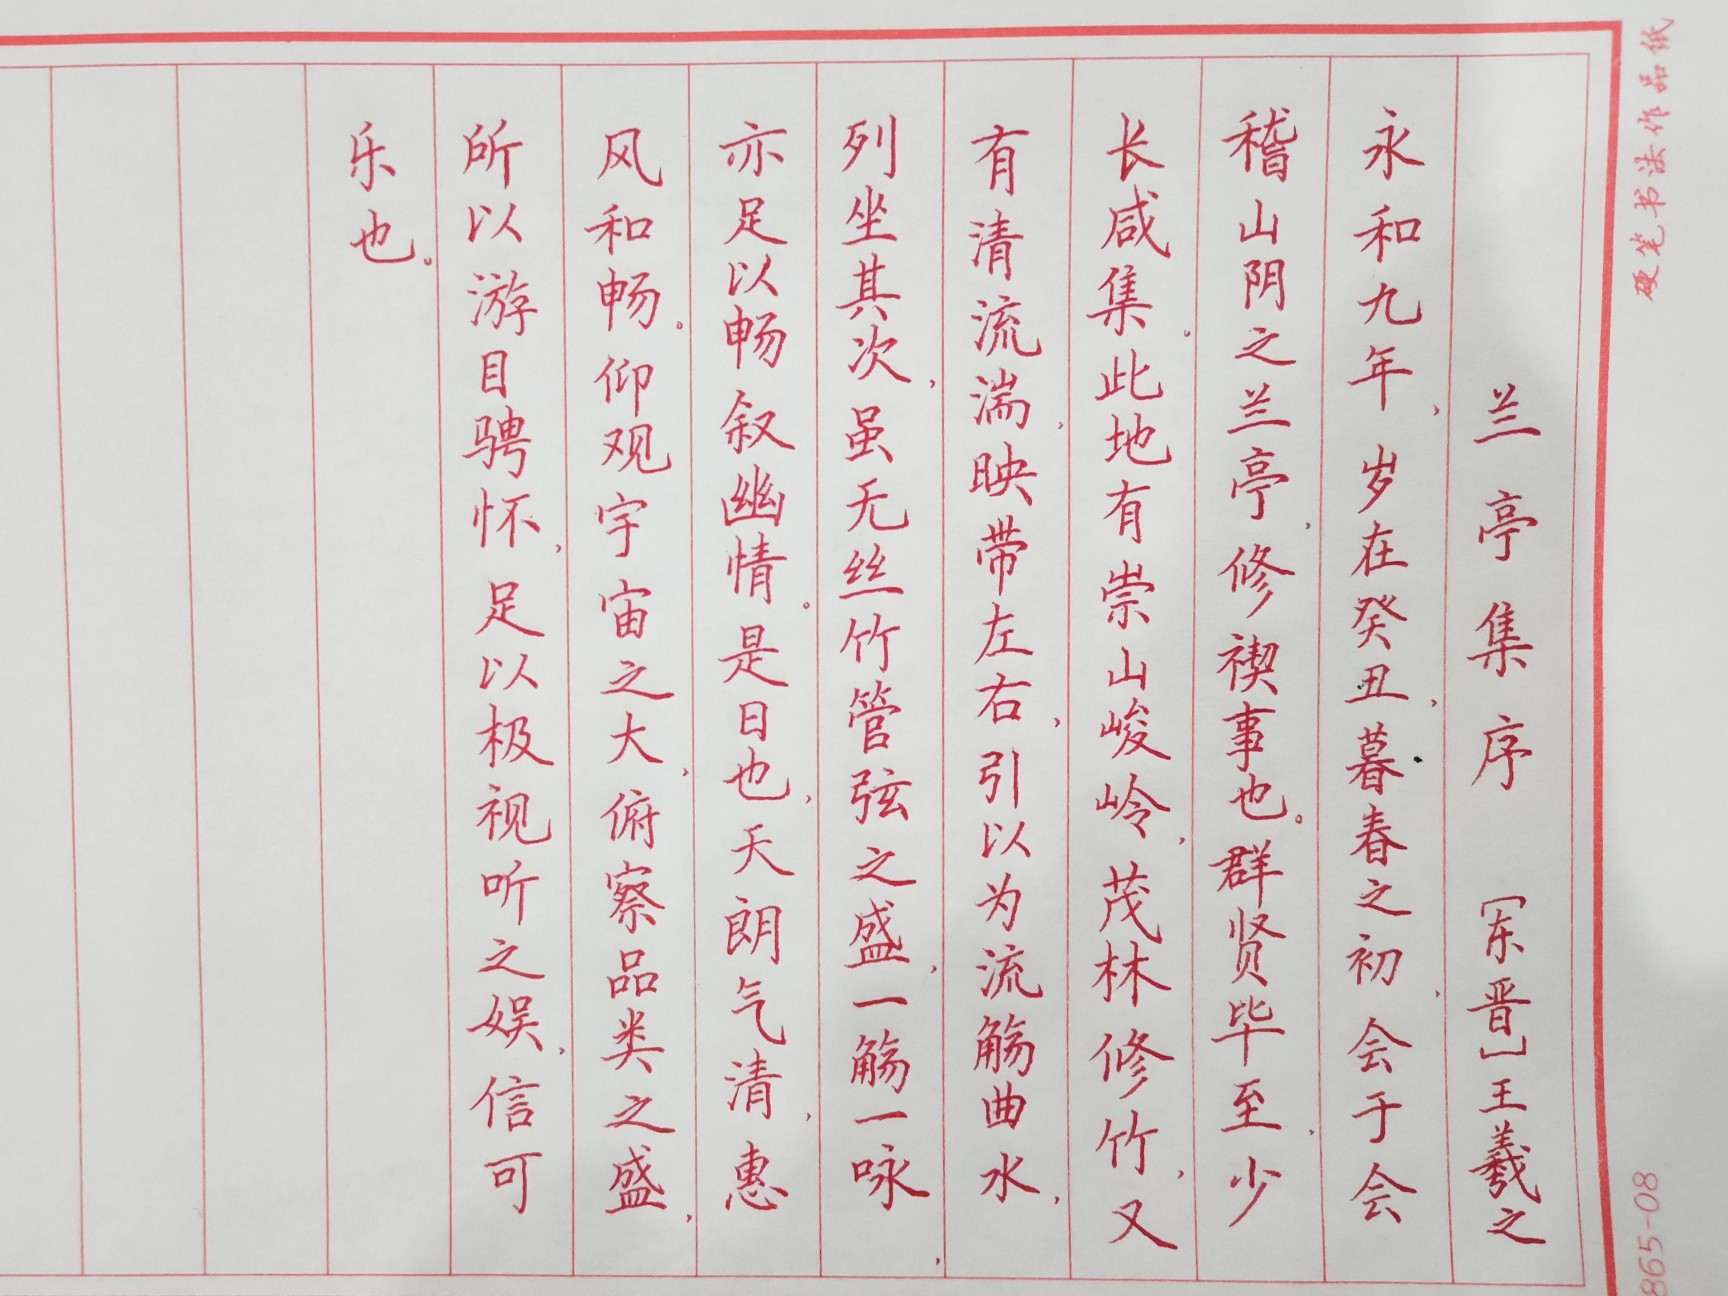 硬笔书法作品纸
兰亭集序 [东晋]王羲之
永和九年,岁在癸丑,暮春之初,会于会
稽山阴之兰亭,修禊事也。群贤毕至,少
长咸集。此地有崇山峻岭,茂林修竹,又
有清流湍,映带左右,引以为流觞曲水,
列坐其次,虽无丝竹管弦之盛,一觞一咏,
亦足以畅叙幽情。是日也,天朗气清,惠
风和畅。仰观宇宙之大,俯察品类之盛,
所以游目骋怀,足以极视听之娱,信可
乐也。
865-08